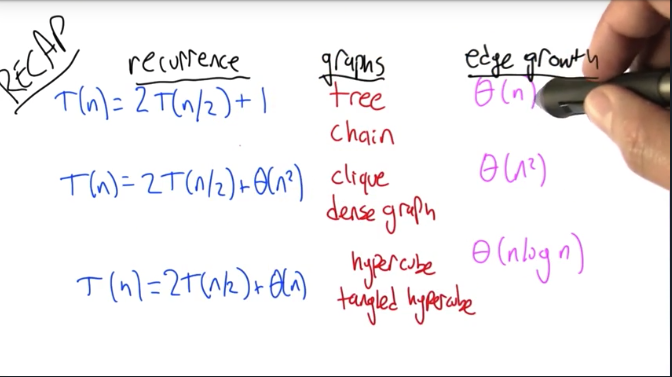 RECAP
recurrence graphs edge growth
T(n) = 2T(n/2) + 1 tree Θ(n)
chain
T(n) = 2T(n/2) + Θ(n²) clique Θ(n²)
dense graph
T(n) = 2T(n/2) + Θ(n) hypercube Θ(n log n)
tangled hypercube